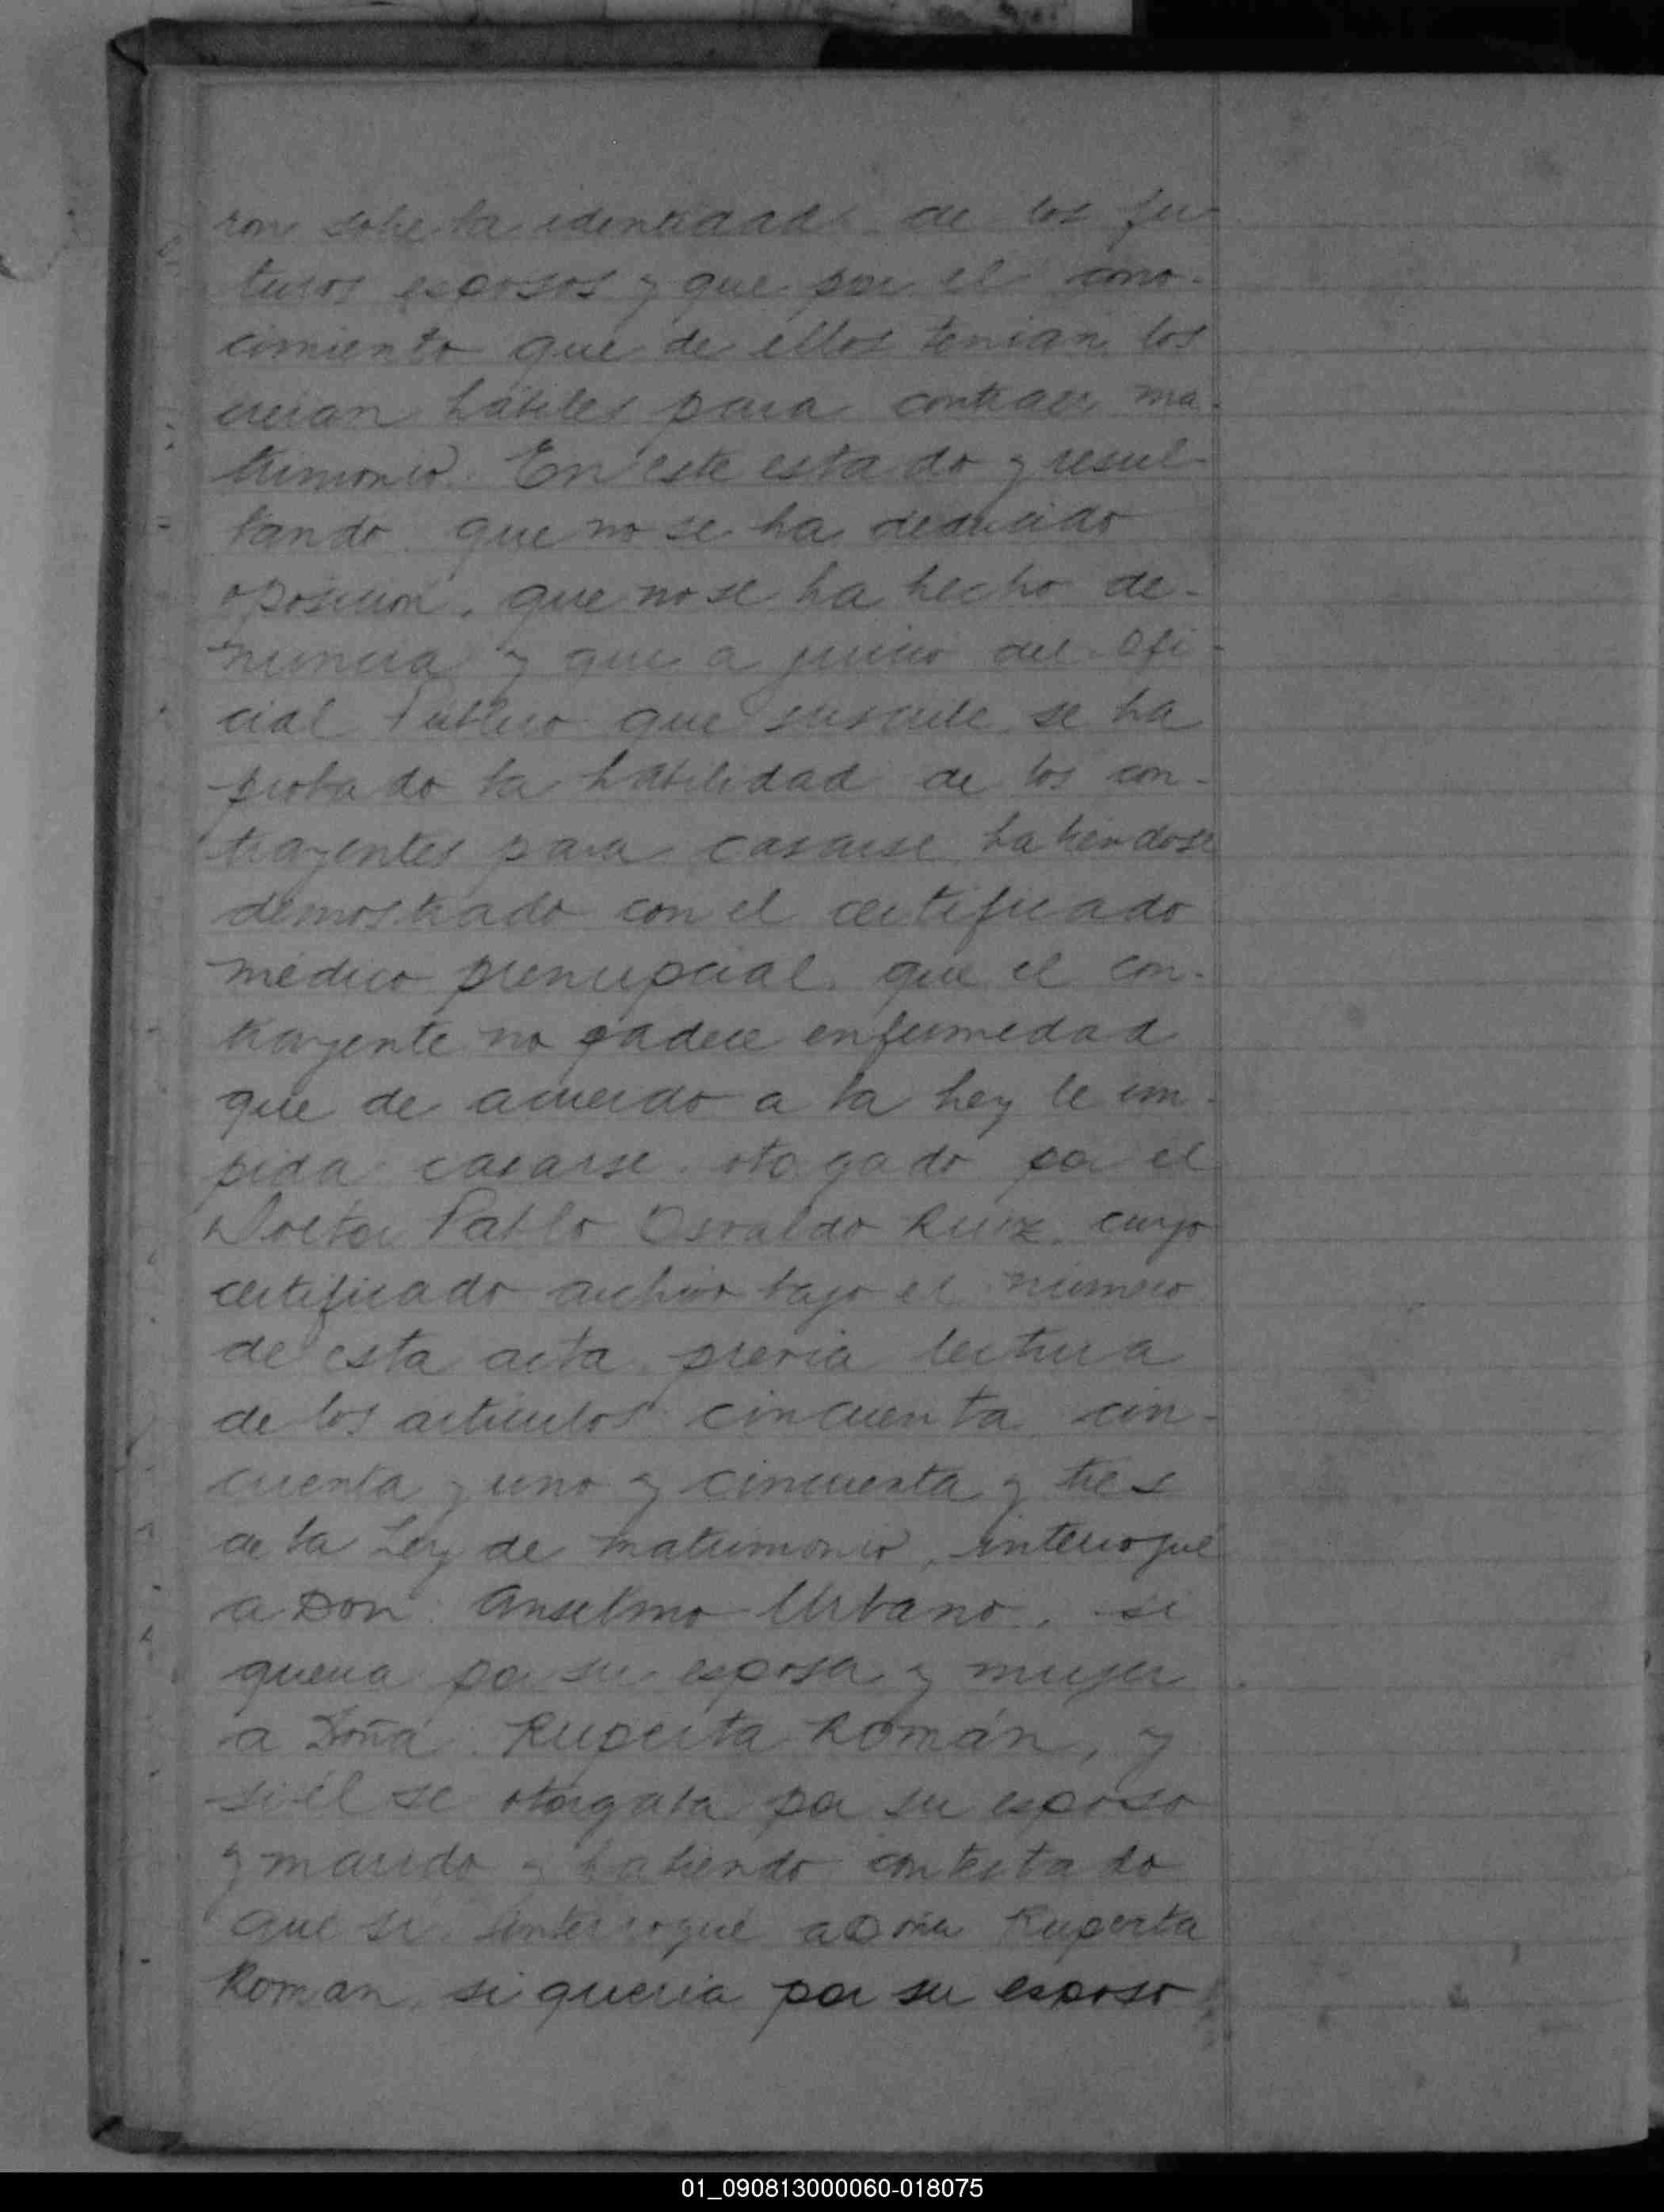 ron sobre la identidad de los fu-
turos esposos y que por el cono-
cimiento que de ellos tenian los
creian hábiles para contraer ma-
trimonio. En este estado y resul-
tando que no se ha deducido
oposición, que no se ha hecho de-
nuncia y que a juicio del Ofi-
cial Público que suscribe se ha
probado la habilidad de los con-
trayentes para casarse habiendose
demostrado con el certificado
médico prenupcial que el con-
trayente no padece enfermedad
que de acuerdo a la ley le im-
pida casarse otogado por el
Doctor Pablo Osvaldo Ruiz cuyo
certificado archivo bajo el número
de esta acta previa lectura
de los artículos cincuenta cin-
cuenta y uno y cincuenta y tres
de la Ley de matrimonio, interrogué
a Don Anselmo Urbano, si
queria por su esposa y mujer
a Doña Ruperta Román, y
si él se otorgaba por su esposo
y marido y habiendo contestado
que si interrogué a Doña Ruperta
Roman, si queria por su esposo
01_090813000060-018075